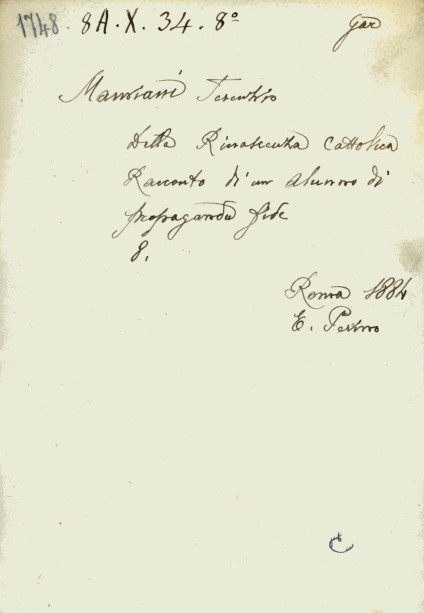 1748. 8A.X.34.8º gar
Mamiani Terenzio
Della Rinascenza Cattolica
Racconto di un alunno di
propaganda fide
8.
Roma 1884
E. Perino